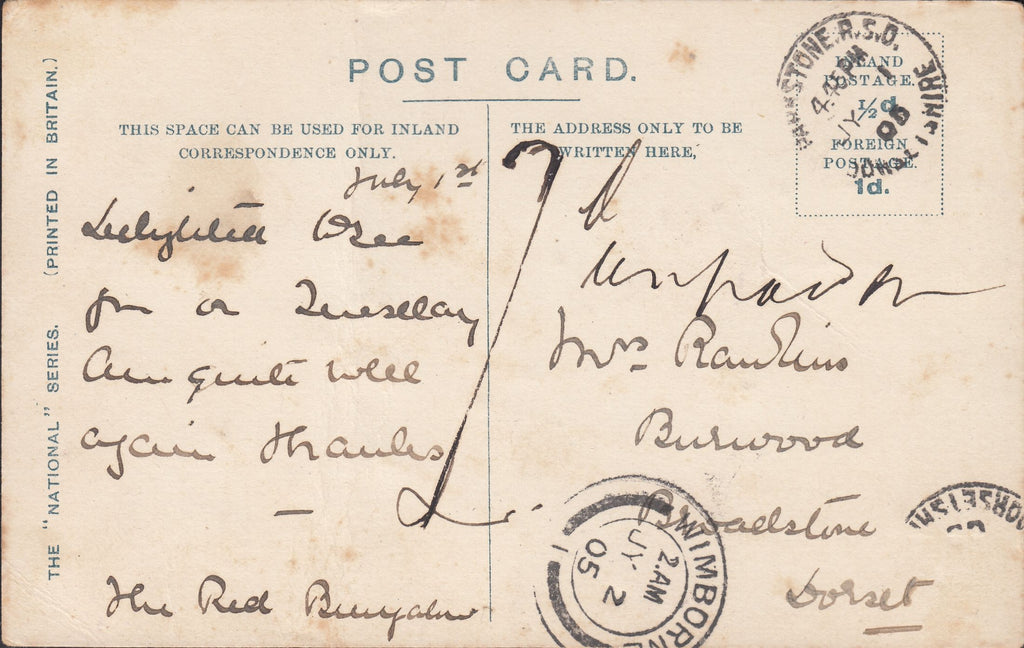 POST CARD.
THE "NATIONAL" SERIES. (PRINTED IN BRITAIN.)
THIS SPACE CAN BE USED FOR INLAND
CORRESPONDENCE ONLY.
THE ADDRESS ONLY TO BE
WRITTEN HERE,
INLAND
POSTAGE.
1/2d.
FOREIGN
POSTAGE.
1d.
PARKSTONE.R.S.O.
4.45PM
JY 1
05
DORSETSHIRE
July 1st
Delighted to see
you on Tuesday
Am quite well
again Thanks
L.
The Red Bungalow
1d
unpaid
Mrs Rawkins
Burwood
Broadstone
Dorset
WIMBORNE
2.AM
JY 2
05
DORSETSHI
05